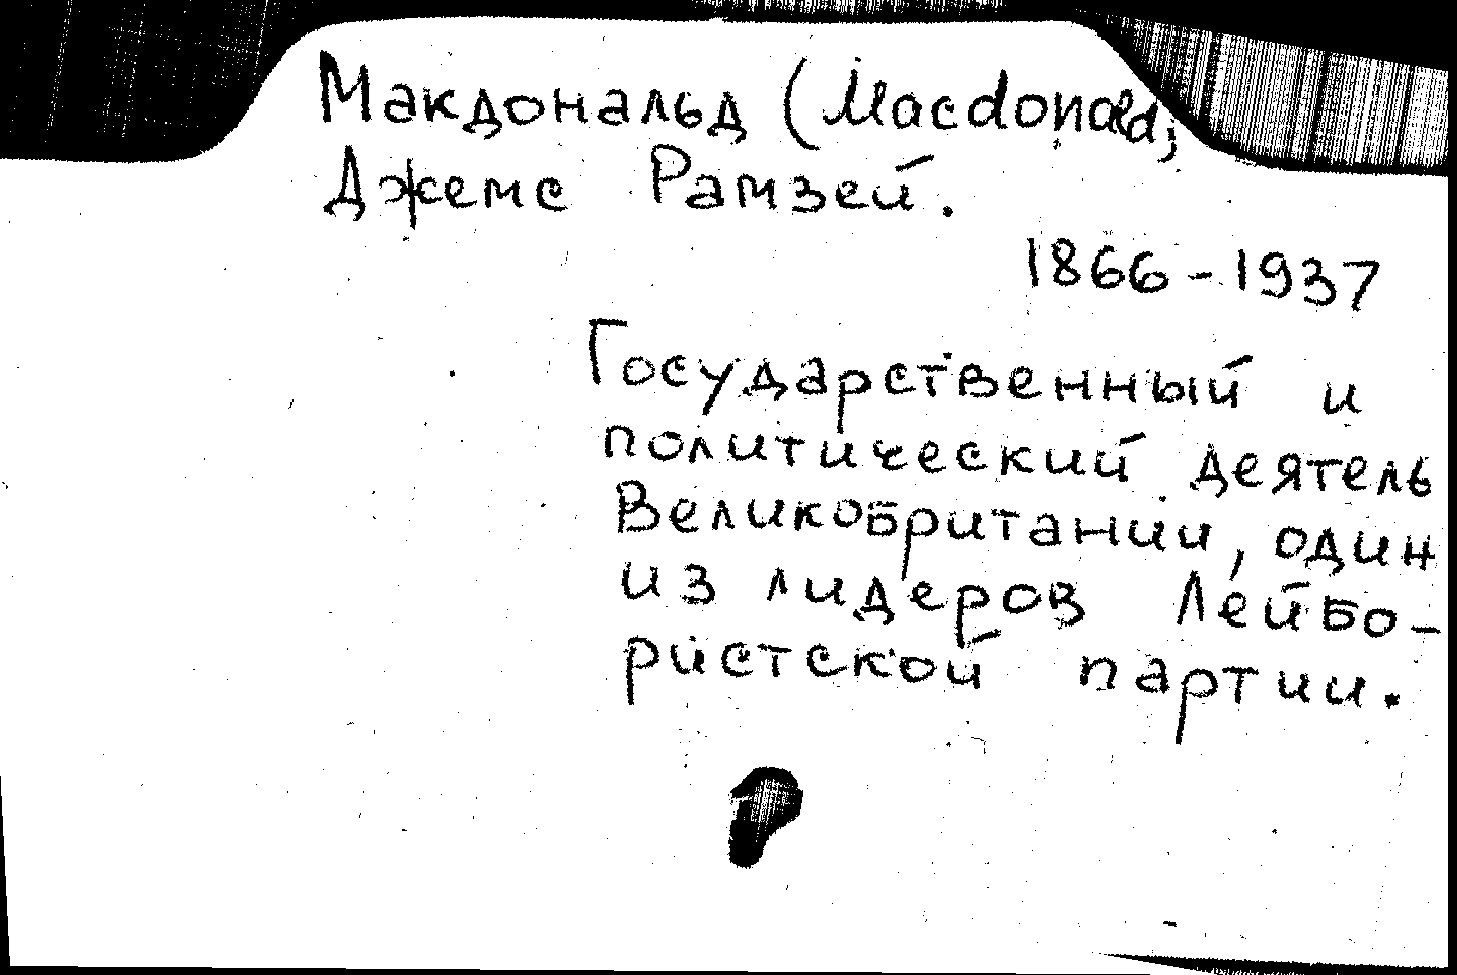 Макдональд (Macdonald,
Джемс Рамзей.
1866-1937
Государственный и
политический деятель
Великобритании, один
из лидеров Лейбо-
ристской партии.